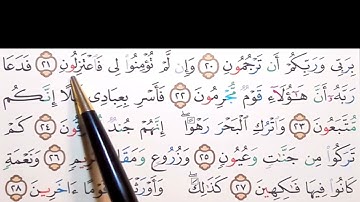 بِرَبِّي وَرَبِّكُمْ أَن تَرْجُمُونِ ٢٠ وَإِن لَّمْ تُؤْمِنُوا۟ لِي فَٱعْتَزِلُونِ ٢١ فَدَعَا
رَبَّهُۥٓ أَنَّ هَـٰٓؤُلَآءِ قَوْمٌ مُّجْرِمُونَ ٢٢ فَأَسْرِ بِعِبَادِي إِنَّكُم
مُّتَّبَعُونَ ٢٣ وَٱتْرُكِ ٱلْبَحْرَ رَهْوًا إِنَّهُمْ جُندٌ ٢٤ كَمْ
تَرَكُوا۟ مِن جَنَّـٰتٍ وَعُيُونٍ ٢٥ وَزُرُوعٍ وَمَقَامٍ ٢٦ وَنَعْمَةٍ
كَانُوا۟ فِيهَا فَـٰكِهِينَ ٢٧ كَذَٰلِكَ قَوْمًا ءَاخَرِينَ ٢٨